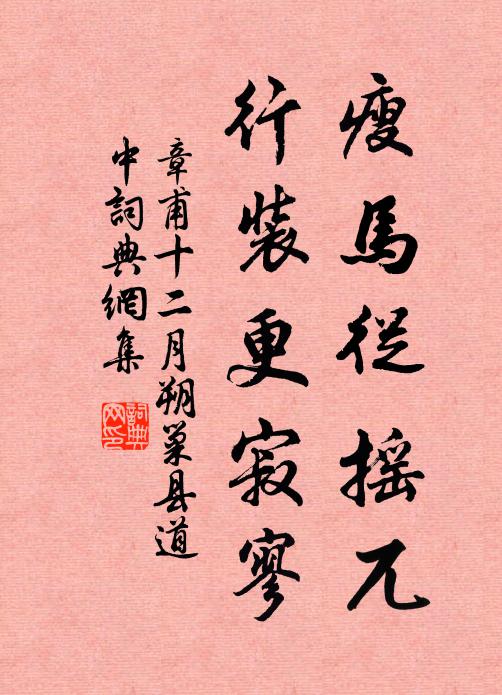 瘦馬從摇兀
行裝更寂寥
章甫十二月朔巢县道
中詞典網集
詞典网印